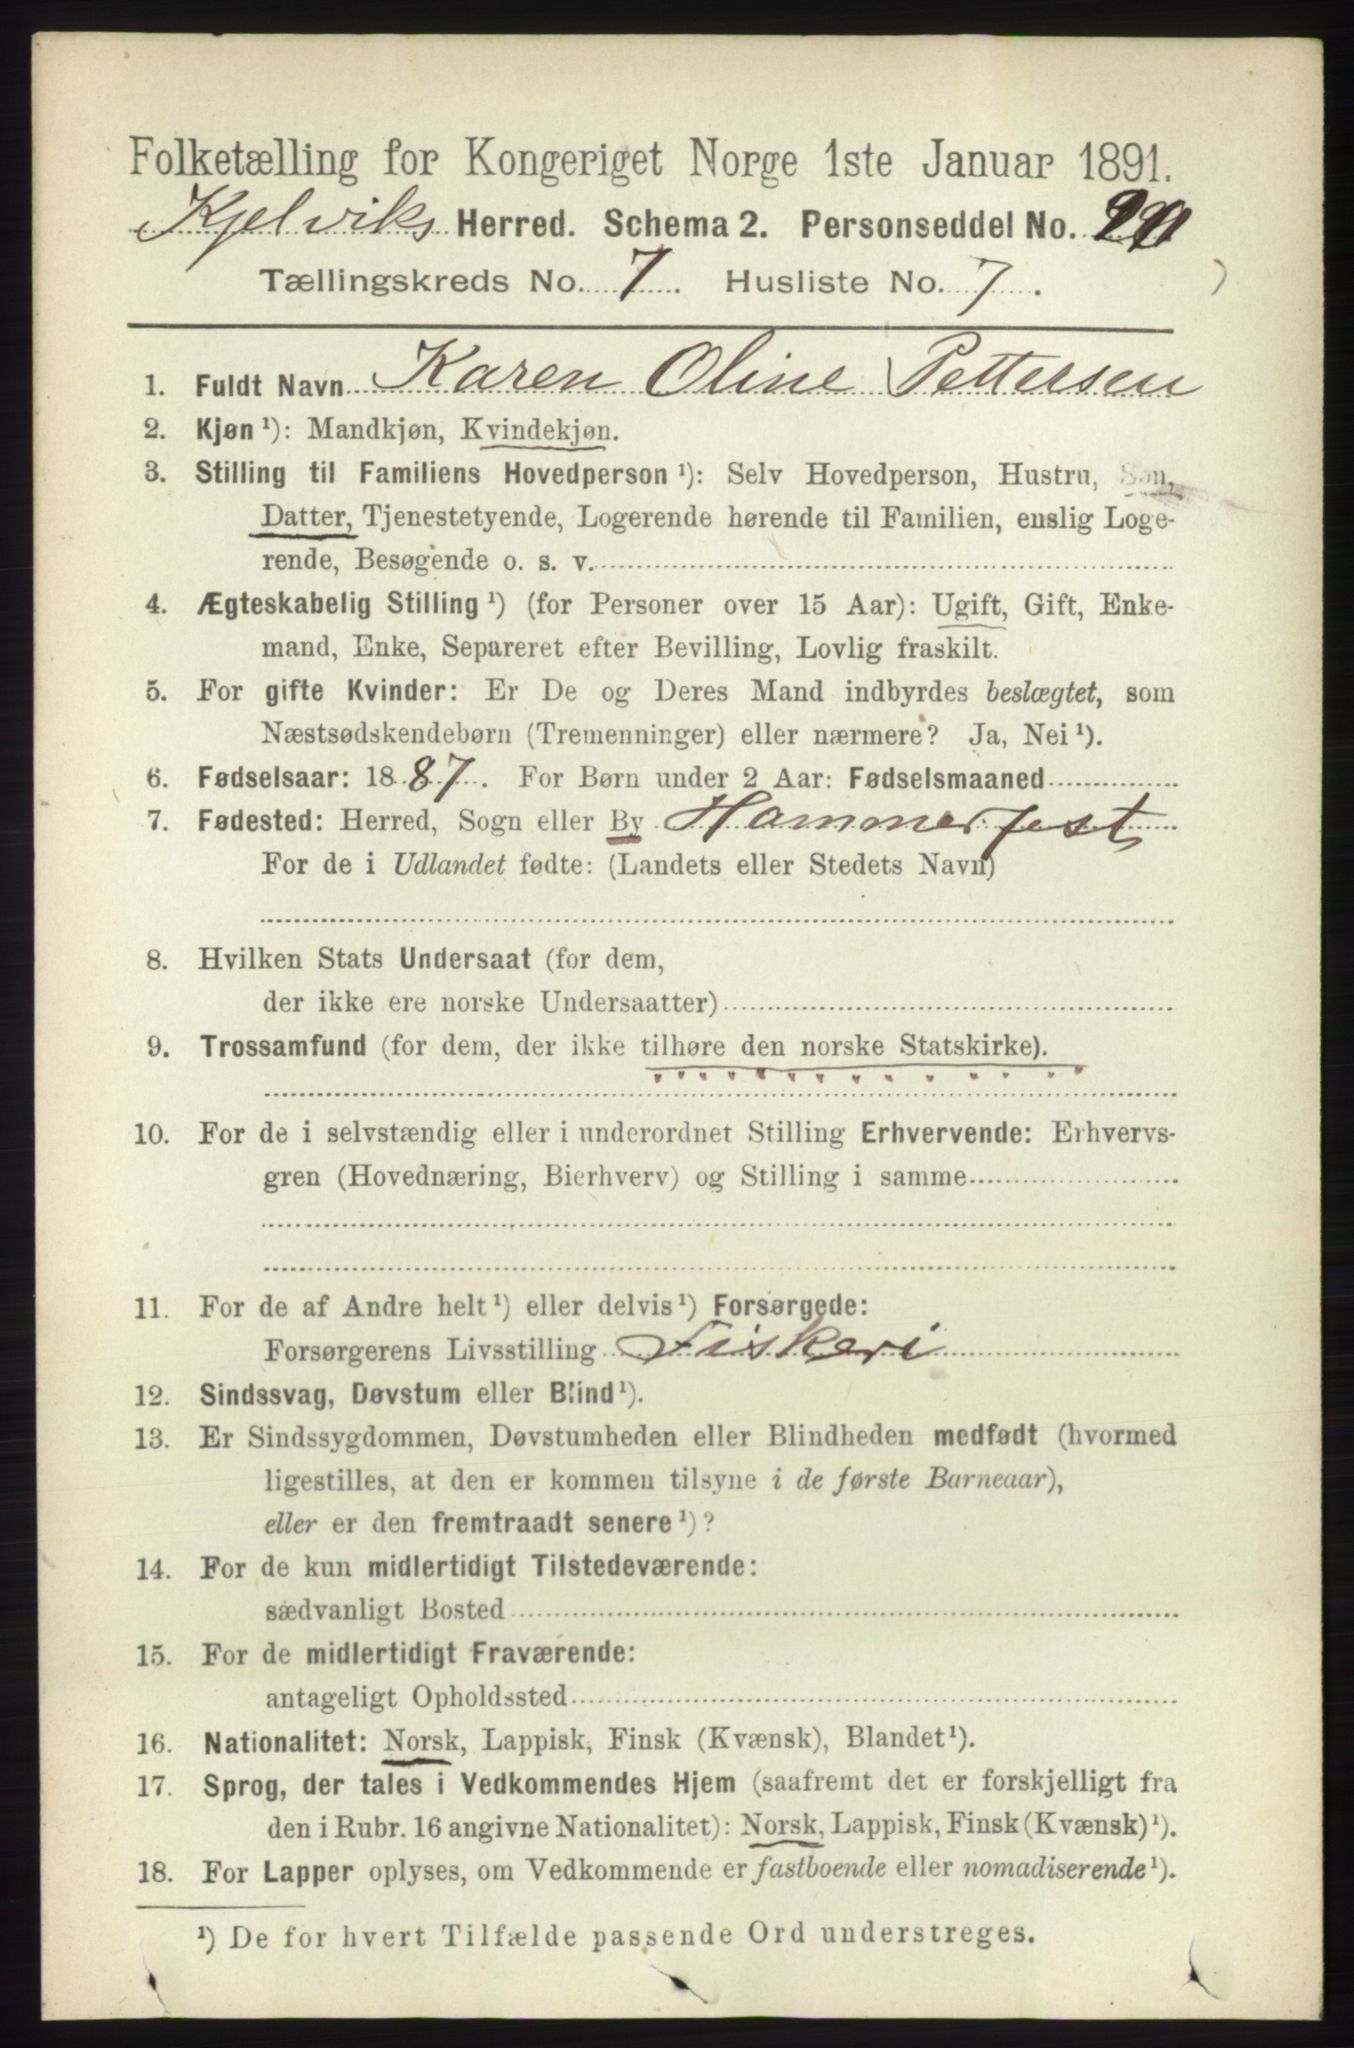 Folketælling for Kongeriget Norge 1ste Januar 1891.
Kjelviks Herred. Schema 2. Personseddel No.
Tællingskreds No. 7. Husliste No. 7.
1. Fuldt Navn Karen Oline Pettersen
2. Kjøn ¹): Mandkjøn, Kvindekjøn.
3. Stilling til Familiens Hovedperson ¹): Selv Hovedperson, Hustru, Søn,
Datter, Tjenestetyende, Logerende hørende til Familien, enslig Loge-
rende, Besøgende o. s. v.
4. Ægteskabelig Stilling ¹) (for Personer over 15 Aar): Ugift, Gift, Enke-
mand, Enke, Separeret efter Bevilling, Lovlig fraskilt.
5. For gifte Kvinder: Er De og Deres Mand indbyrdes beslægtet, som
Næstsødskendebørn (Tremenninger) eller nærmere? Ja, Nei ¹).
6. Fødselsaar: 1887. For Børn under 2 Aar: Fødselsmaaned
7. Fødested: Herred, Sogn eller By Hammerfest
For de i Udlandet fødte: (Landets eller Stedets Navn)
8. Hvilken Stats Undersaat (for dem,
der ikke ere norske Undersaatter)
9. Trossamfund (for dem, der ikke tilhøre den norske Statskirke).
" " " " " " " " " " " " "
10. For de i selvstændig eller i underordnet Stilling Erhvervende: Erhvervs-
gren (Hovednæring, Bierhverv) og Stilling i samme
11. For de af Andre helt ¹) eller delvis ¹) Forsørgede:
Forsørgerens Livsstilling Fiskeri
12. Sindssvag, Døvstum eller Blind ¹).
13. Er Sindssygdommen, Døvstumheden eller Blindheden medfødt (hvormed
ligestilles, at den er kommen tilsyne i de første Barneaar),
eller er den fremtraadt senere ¹)?
14. For de kun midlertidigt Tilstedeværende:
sædvanligt Bosted
15. For de midlertidigt Fraværende:
antageligt Opholdssted
16. Nationalitet: Norsk, Lappisk, Finsk (Kvænsk), Blandet ¹).
17. Sprog, der tales i Vedkommendes Hjem (saafremt det er forskjelligt fra
den i Rubr. 16 angivne Nationalitet): Norsk, Lappisk, Finsk (Kvænsk) ¹).
18. For Lapper oplyses, om Vedkommende er fastboende eller nomadiserende ¹).
¹) De for hvert Tilfælde passende Ord understreges.